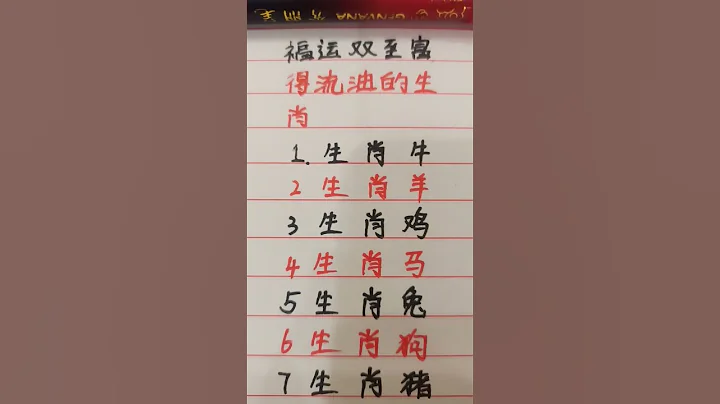 福运双至富
得流油的生
肖
1. 生肖牛
2 生肖羊
3 生肖鸡
4 生肖马
5 生肖兔
6 生肖狗
7 生肖猪